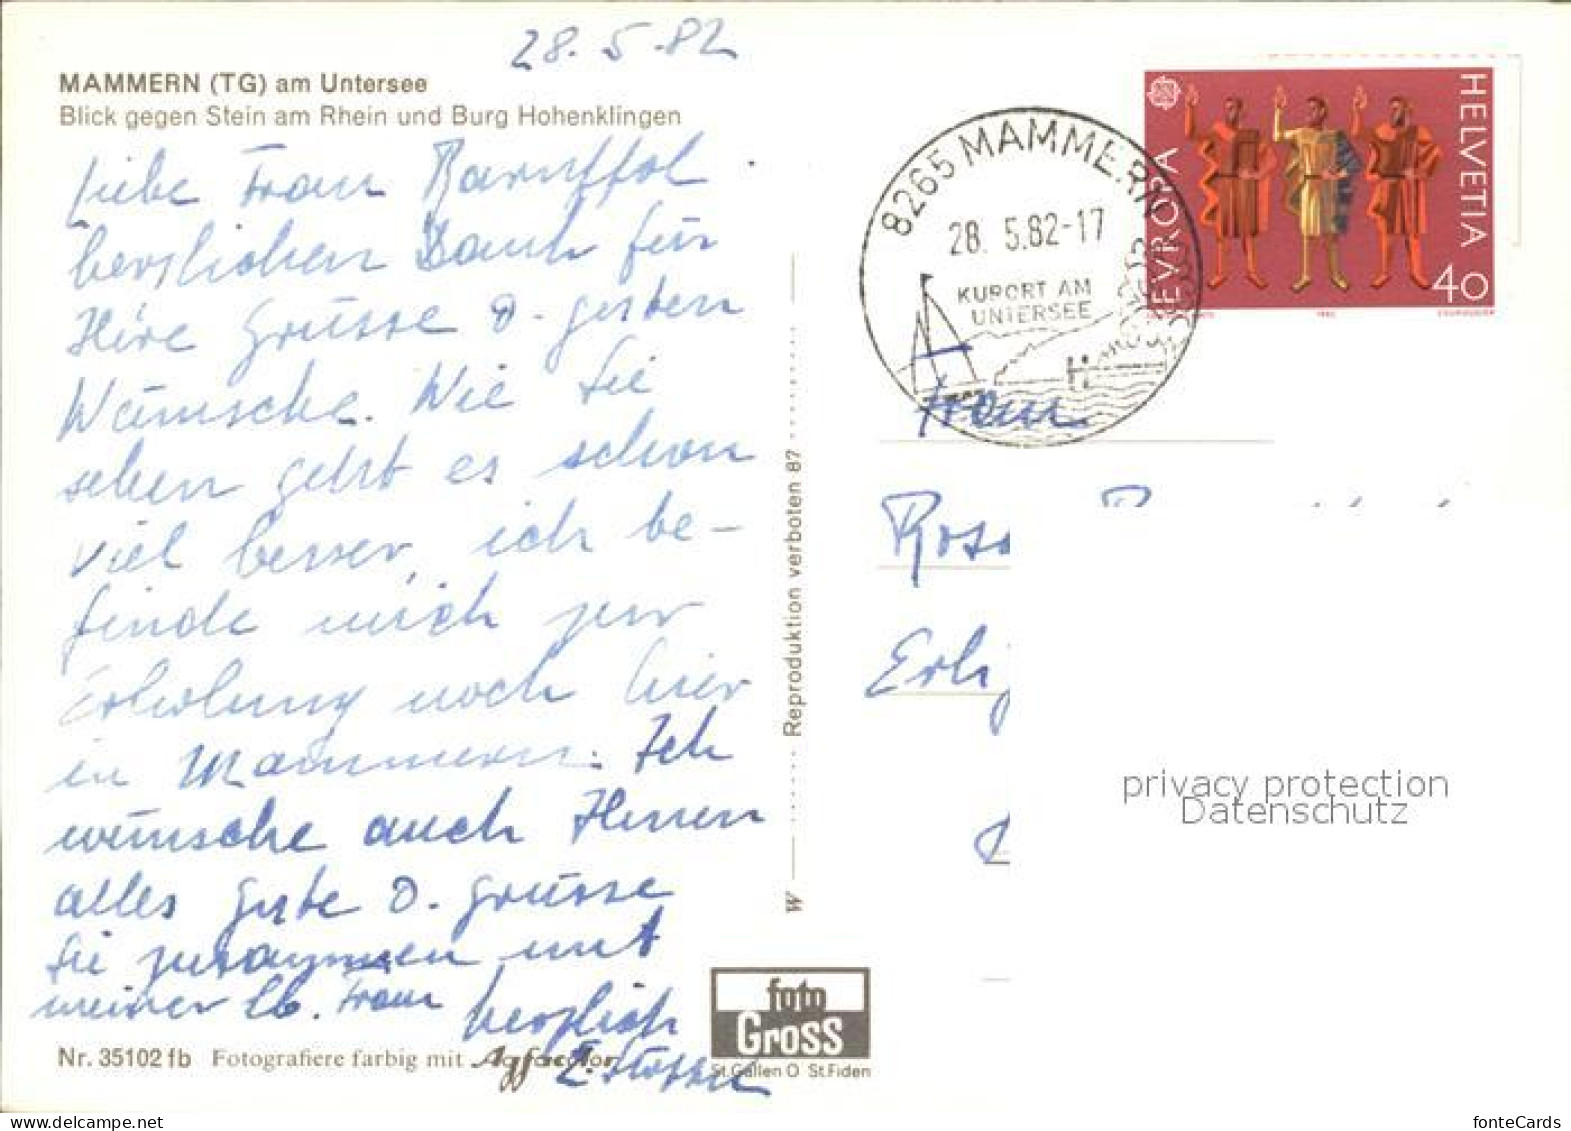 28.5.82
MAMMERN (TG) am Untersee
Blick gegen Stein am Rhein und Burg Hohenklingen
Liebe Frau
herzlichen Dank für
Ihre Grüsse & guten
Wünsche. Wie Sie
sehen geht es schon
viel besser, ich be-
finde mich zur
Erholung noch hier
in Mammern. Ich
wünsche auch Ihnen
alles gute & grüsse
Sie zusammen mit
meiner lb. Frau
herzlich
Nr. 35102 fb Fotografiere farbig mit Agfacolor
W Reproduktion verboten 87
foto
Gross
St.Gallen O St.Fiden
8265 MAMMERN
28. 5.82-17
KURORT AM
UNTERSEE
EUROPA
HELVETIA
40
1982
Frau
privacy protection
Datenschutz
fonteCards